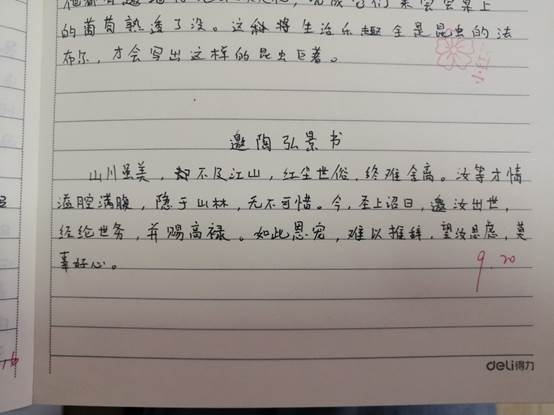 的萄萄熟透了没。这种将生活乐趣全是昆虫的法
布尔，才会写出这样的昆虫巨著。
邀陶弘景书
山川虽美，却不及江山，红尘世俗，终难全离。汝等才情
溢腔满腹，隐于山林，无不可惜。今，圣上诏曰，邀汝出世，
经纶世务，并赐高禄。如此恩宠，难以推辞，望汝思虑，莫
辜好心。
9.20
deli得力